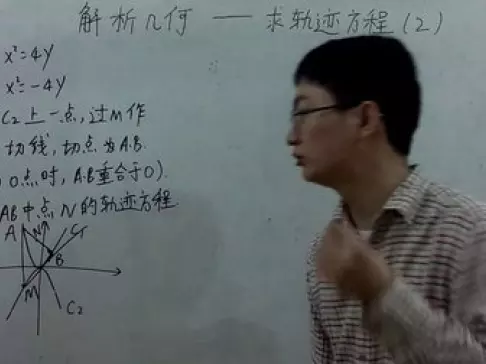 解析几何 — 求轨迹方程(2)
x²=4y
x²=-4y
C₂上一点,过M作
切线,切点为A.B.
O点时,A.B重合于O).
AB中点N的轨迹方程
A N C₁
B
M
C₂